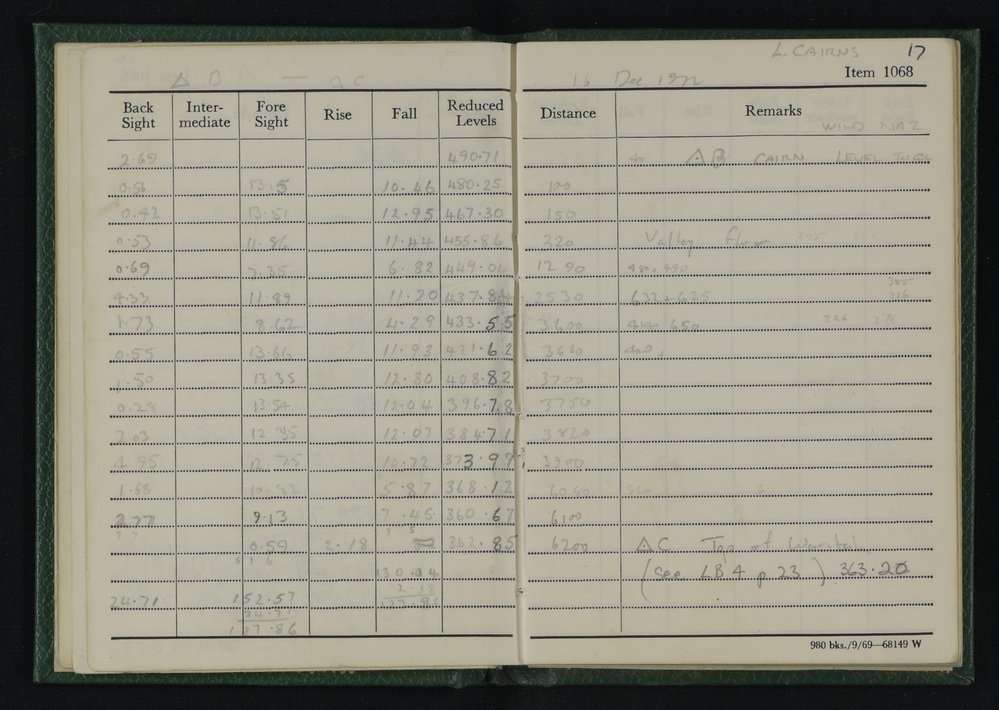 L. CAIRNS 17
△ B — △ C 16 Dec. 1972 Item 1068
Back Sight Inter-mediate Fore Sight Rise Fall Reduced Levels Distance Remarks
WILD NA2
2.69 490.71 △B CAIRN LEVEL
0.56 13.15 10.46 480.25 100
0.42 13.51 12.95 467.30 150
0.53 11.86 11.44 455.86 320 Valley floor
0.69 7.35 6.82 449.04 1290
4.33 11.89 11.20 437.84 2530 632 + 625
1.73 8.62 4.29 433.55 3600 650
0.55 13.66 11.93 421.62 3660
1.50 13.35 12.80 408.82 3700
0.28 13.54 12.04 396.78 3750
2.03 12.35 12.07 384.71 3820
4.95 12.75 10.72 373.99 3900
1.68 10.82 5.87 368.12 6080
2.77 9.13 7.45 360.67 6100
0.59 2.18 362.85 6200 △C Top of
130.04 (See LB4 p 23) 363.20
24.71 152.57 2.18
24.71 127.86
127.86
980 bks./9/69—68149 W